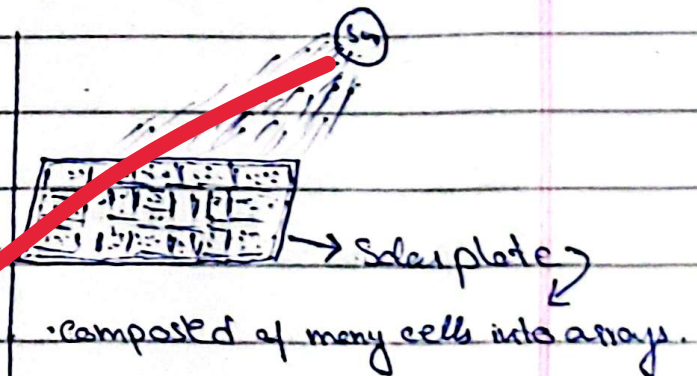 Sun
→ Solar plate
• composed of many cells into arrays.